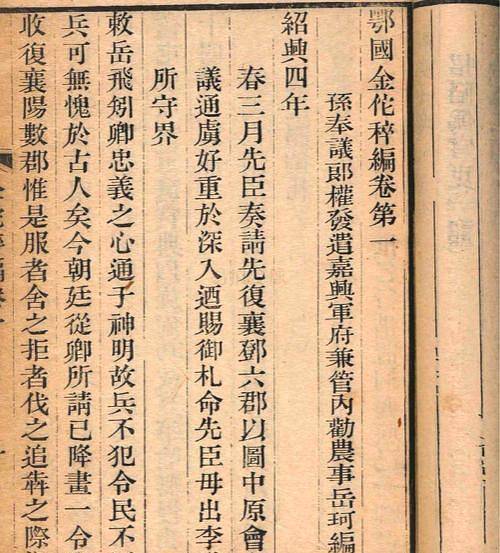 鄂國金佗稡編卷第一
孫奉議郎權發遣嘉興軍府兼管內勸農事岳珂編
紹興四年
春三月先臣奏請先復襄鄧六郡以圖中原會
議通虜好重於深入廼賜御札命先臣毋出李
所守界
敕岳飛矧卿忠義之心通于神明故兵不犯令民不
兵可無愧於古人矣今朝廷從卿所請已降畫一令
收復襄陽數郡惟是服者舍之拒者伐之追奔之際